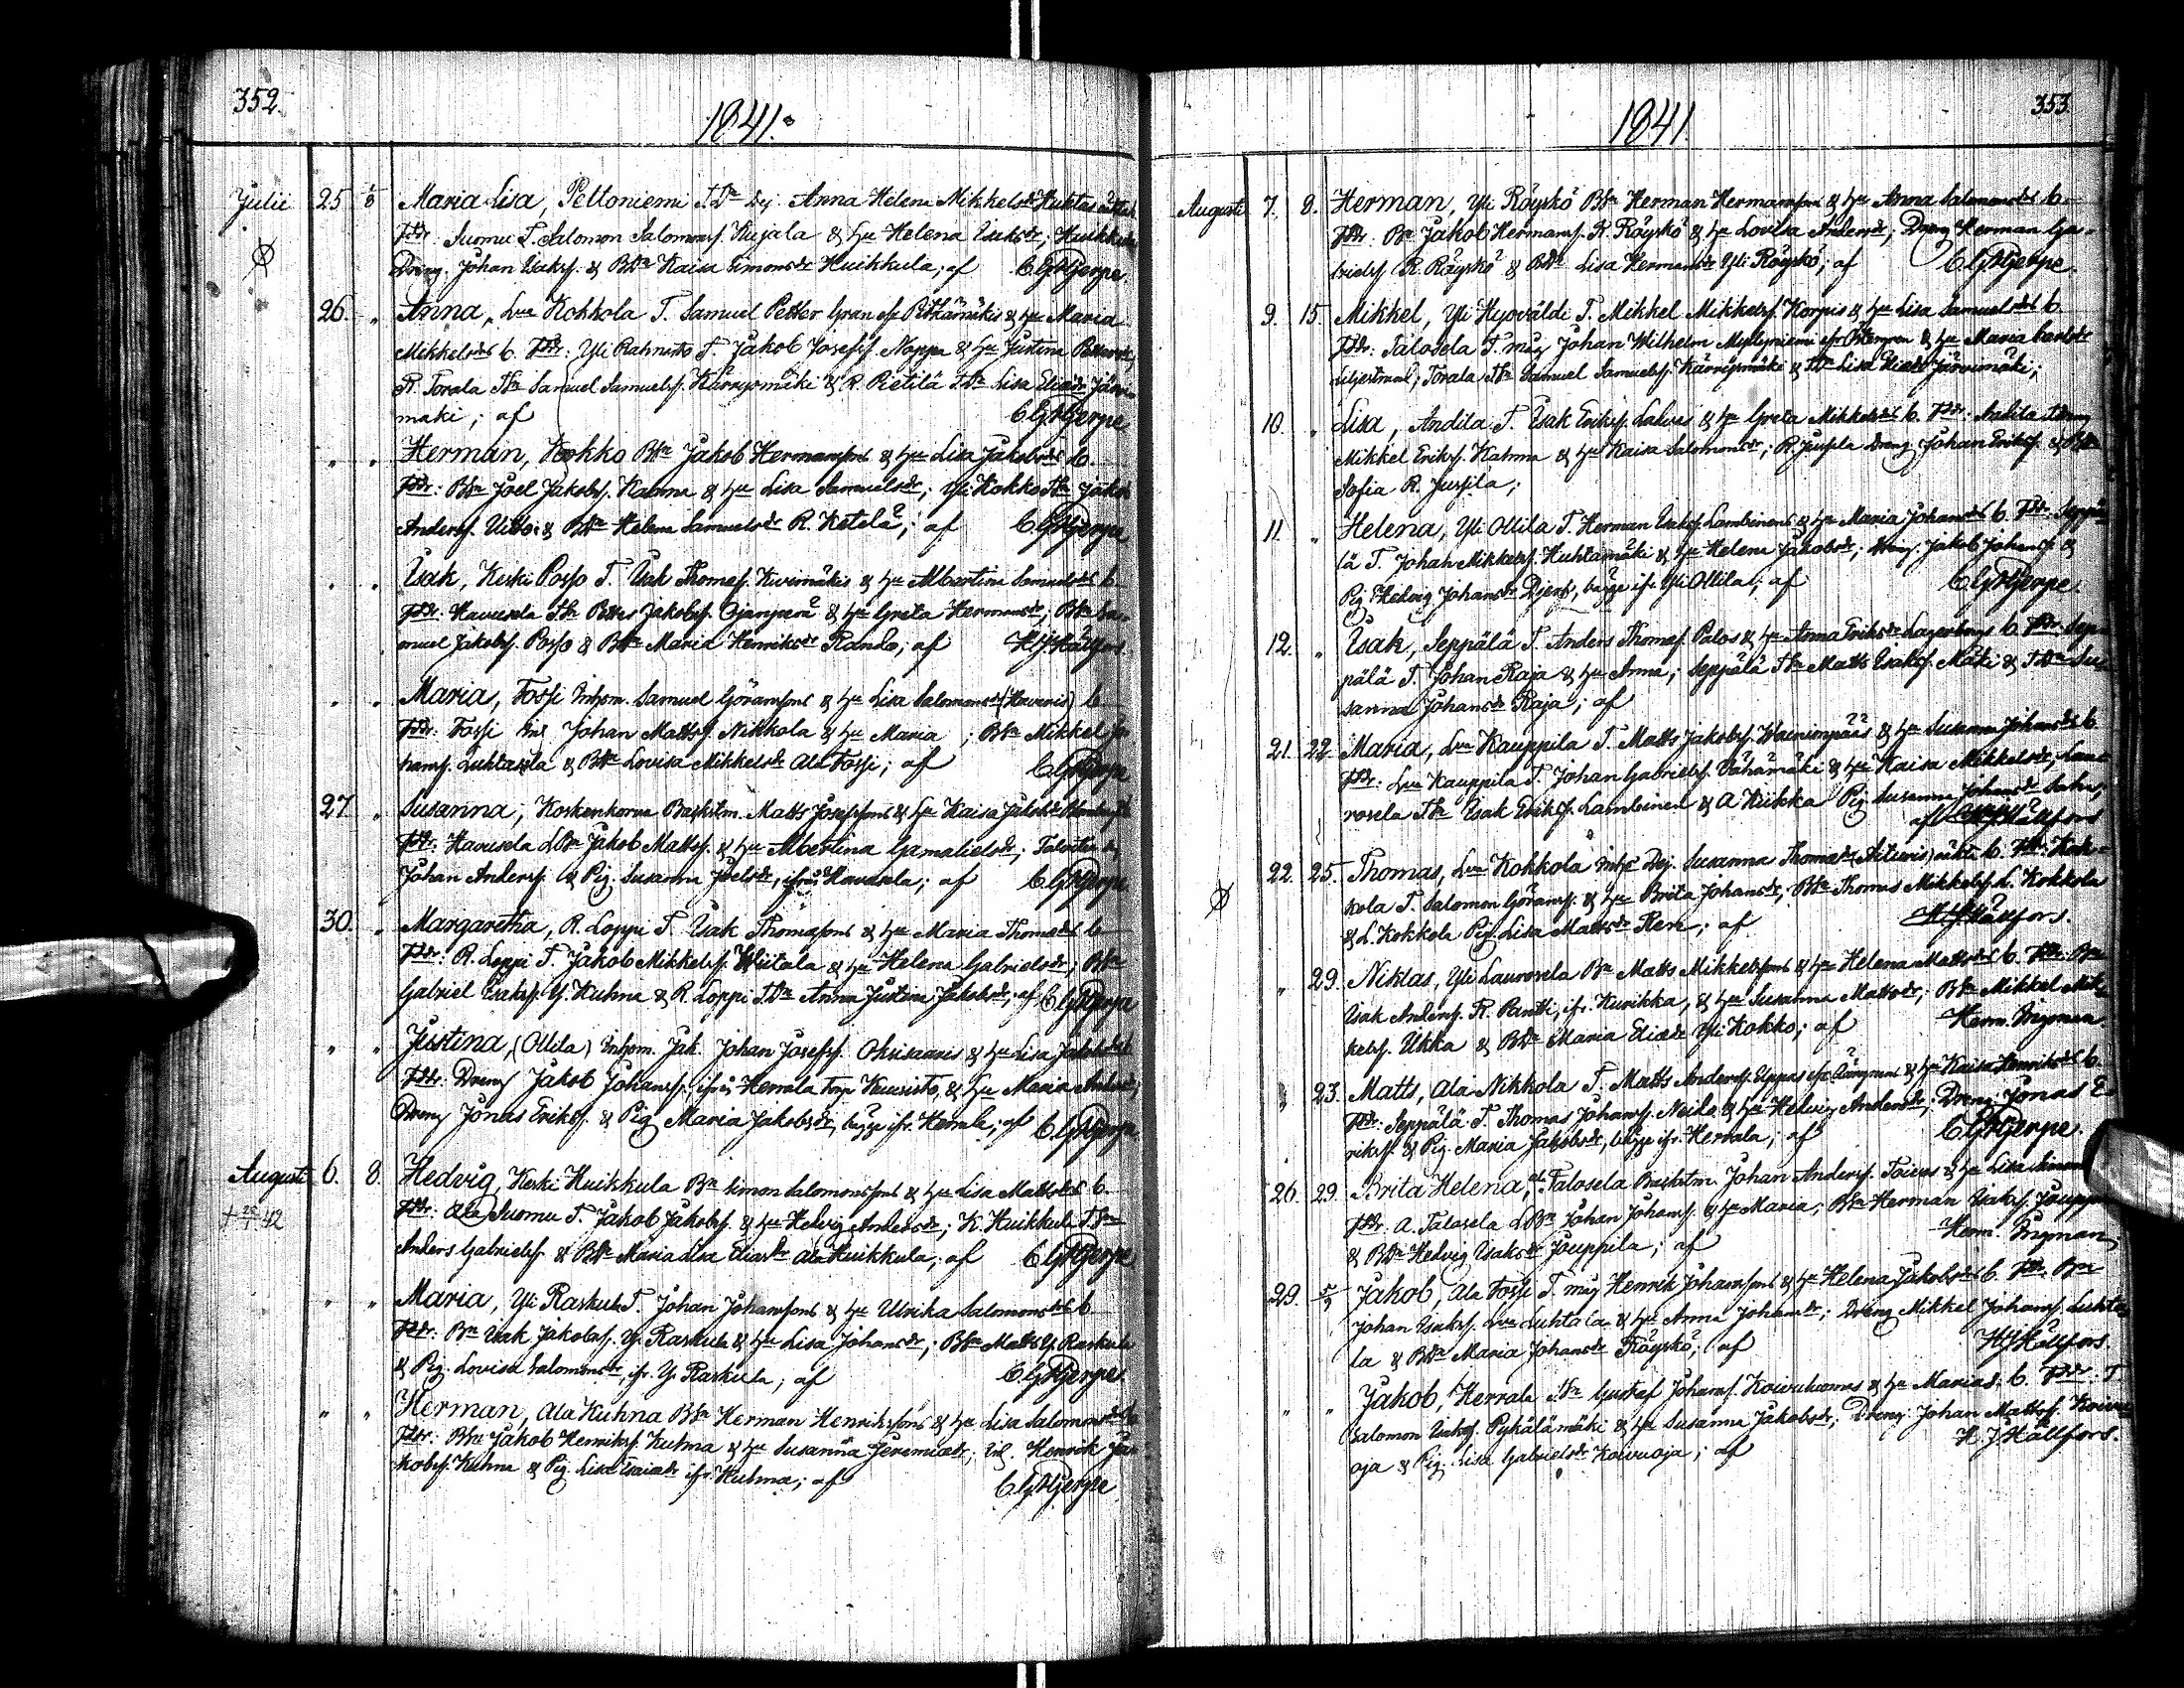 352.
1841.
Julii 25 1/8 Maria Lisa, Peltoniemi T.Dr Dej. Anna Helena Mikkelsdr Huhtas
Fddr: Suomu T. Salomon Salomonsf. Kujala & hu Helena Isaksdr; Huikkula
Dreng. Johan Isaksf. & BDr Kaisa Simonsdr Huikkula; af C.G. Hjerpe.
26 " Anna, Lua Kokkola T. Samuel Petter Gran & hu Maria
Mikkelsdrs b. Fddr: Yli Rahnasto T. Jakob Josefsf. Noppa & hu Justina
R. Torala Sn Samuel Samuelsf. Kärryismäki & R. Pietilä TDr Lisa Eliædr Järvi-
mäki; af C.G. Hjerpe
" " Herman, Kokko BSn Jakob Hermansfons & hu Lisa Jakobsdrs b.
Fddr: BSn Joel Jakobsf. Kanna & hu Lisa Samuelsdr; Yli Kokko Sn Jakob
Andersf. & BDr Helena Samuelsdr R. Ketelä; af C.G. Hjerpe
" " Isak, Keski Posso T. Isak Thomasf. Kivimäkis & hu Albertina Samuelsdrs b
Fddr: Havusela Sn Petter Jakobsf. Ojanperä & hu Greta Hermansdr; BSn Sa-
muel Jakobsf. Posso & BDr Maria Henriksdr Ranto; af H.J. Hällfors
" " Maria, Fossi Inhom. Samuel Göransfons & hu Lisa Salomonsdrs (Havunis) b
Fddr: Fossi Inh. Johan Mattsf. Nikkola & hu Maria ; BSn Mikkel Jo-
hansf. Luhtasela & BDr Lovisa Mikkelsdr Ala Fossi; af C.G. Hjerpe
27. " Susanna, Koskenkorva Backstm. Matts Josefsfons & hu Kaisa Jakobsdr
Fddr: Havusela LBn Jakob Mattsf. & hu Albertina Gamalielsdr;
Johan Andersf. & Pig. Susanna Joelsdr, ifrån Havusela; af C.G. Hjerpe
30. " Margaretha, R. Loppi T. Isak Thomasfons & hu Maria Thomasdrs b
Fddr: R. Loppi T. Jakob Mikkelsf. Wiitala & hu Helena Gabrielsdr; BSn
Gabriel Isaksf. Y. Kuhna & R. Loppi T.Dr Anna Justina Jakobsdr; af C.G. Hjerpe
" " Justina, (Ollila) Inhom. Jak. Johan Josefsf. & hu Lisa Jakobsdrs b
Fddr: Dreng Jakob Johansf. ifrån Herrala torp Kuusisto, & hu Maria Andersdr;
Dreng Jonas Eriksf. & Pig Maria Jakobsdr, begge ifr. Herrala; af C.G. Hjerpe
Augusti 6. 8. Hedvig, Keski Huikkula Bn Simon Salomonsfons & hu Lisa Mattsdrs b.
Fddr: Ala Suomu T. Jakob Jakobsf. & hu Hedvig Andersdr; K. Huikkula T.Sn
Anders Gabrielsf. & BDr Maria Lisa Eliasdr Ala Huikkula; af C.G. Hjerpe
" " Maria, Yli Raskula T. Johan Johansfons & hu Ulrika Salomonsdrs b
Fddr: Bn Isak Jakobsf. Y. Raskula & hu Lisa Johansdr; BSn Matts Y. Raskula
& Pig. Lovisa Salomonsdr, ifr. Y. Raskula; af C.G. Hjerpe
" " Herman, Ala Kuhna BSn Herman Henriksfons & hu Lisa Salomonsdrs b
Fddr: BSn Jakob Henriksf. Kuhna & hu Susanna Jeremiædr; Inh. Henrik Ja-
kobsf. Kuhna & Pig. Lisa Esaiædr ifr. Kuhna; af C.G. Hjerpe
353.
1841.
Augusti 7. 8. Herman, Yli Röyskö BSn Herman Hermansfons & hu Anna Salomonsdrs b.
Fddr: Bn Jakob Hermansf. R. Röyskö & hu Lovisa Andersdr; Dreng Herman Ga-
brielsf. R. Röyskö & BDr Lisa Hermansdr Yli Röyskö; af C.G. Hjerpe.
9. 15. Mikkel, Yli Hyoväldi T. Mikkel Mikkelsf. Korpis & hu Lisa Samuelsdrs b.
Fddr: Talosela T.måg Johan Wilhelm Myllyniemi & hu Maria
Liljestrand; Torala Sn Samuel Samuelsf. Kärryismäki & TDr Lisa Eliædr Järvimäki;
10. " Lisa, Andila T. Isak Eriksf. & hu Greta Mikkelsdrs b. Fddr: Andila
Mikkel Eriksf. Kahma & hu Kaisa Salomonsdr; R. Jussila Dreng Johan Eriksf. & BDr
Sofia R. Jussila;
11. " Helena, Yli Ollila T. Herman Isaksf. Lambinens & hu Maria Johansdrs b. Fddr: Seppä-
lä T. Johan Mikkelsf. Huhtamäki & hu Helena Jakobsdr; Dreng. Jakob Johansf. &
Pig Hedvig Johansdr, begge ifr. Yli Ollila; af C.G. Hjerpe.
12. " Isak, Seppälä T. Anders Thomasf. Palos & hu Anna Eriksdr Lagerbergs b. Fddr: Sep-
pälä T. Johan Raja & hu Anna; Seppälä Sn Matts Isaksf. Mäki & T.Dr Su-
sanna Johansdr Raja; af
21. 22. Maria, Lua Kauppila T. Matts Jakobsf. Wainionpääs & hu Susanna Johansdrs b
Fddr: Lua Kauppila T. Johan Gabrielsf. Vähämäki & hu Kaisa Mikkelsdr; Lau-
rosela Sn Isak Eriksf. Lambinen & A Kiikka Pig Susanna Johansdr
af H.J. Hällfors
22. 25. Thomas, Lua Kokkola Dej. Susanna Thomasdr b. Fddr: Kok-
kola T. Salomon Göransf. & hu Brita Johansdr; BSn Thomas Mikkelsf. L. Kokkola
& L. Kokkola Pig Lisa Mattsdr; af H.J. Hällfors.
" 29. Niklas, Yli Laurosela Bn Matts Mikkelsfons & hu Helena Mattsdrs b. Fddr: Bn
Isak Andersf. R. Pantti, ifr. Kurikka, & hu Susanna Mattsdr; BSn Mikkel Mik-
kelsf. Ukka & BDr Maria Eliædr Yli Kokko; af Herm. Ingman.
" 23. Matts, Ala Nikkola T. Matts Andersf. & hu Kaisa Henriksdrs b.
Fddr: Seppälä T. Thomas Johansf. & hu Hedvig Andersdr; Dreng Jonas E-
riksf. & Pig. Maria Jakobsdr, begge ifr. Herrala; af C.G. Hjerpe.
26. 29. Brita Helena, al. Talosela Backstm. Johan Andersf. & hu Lisa
Fddr: A. Talosela LBn Johan Johansf. & hu Maria; BSn Herman Isaksf. Jouppila
& BDr Hedvig Isaksdr Jouppila; af Herm. Ingman
29. 5/9 Jakob, Ala Fossi T.måg Henrik Johansfons & hu Helena Jakobsdrs b. Fddr: Bn
Johan Isaksf. Lua Luhtala & hu Anna Johansdr; Dreng Mikkel Johansf. Luhta-
la & BDr Maria Johansdr Röyskö; af H.J. Hällfors.
" " Jakob, Herrala Sn Gustaf Johansf. & hu Maria b. Fddr: T.
Salomon Isaksf. Pykälämäki & hu Susanna Jakobsdr; Dreng Johan Mattsf. Koivu-
oja & Pig. Lisa Gabrielsdr Koivuoja; af H.J. Hällfors.